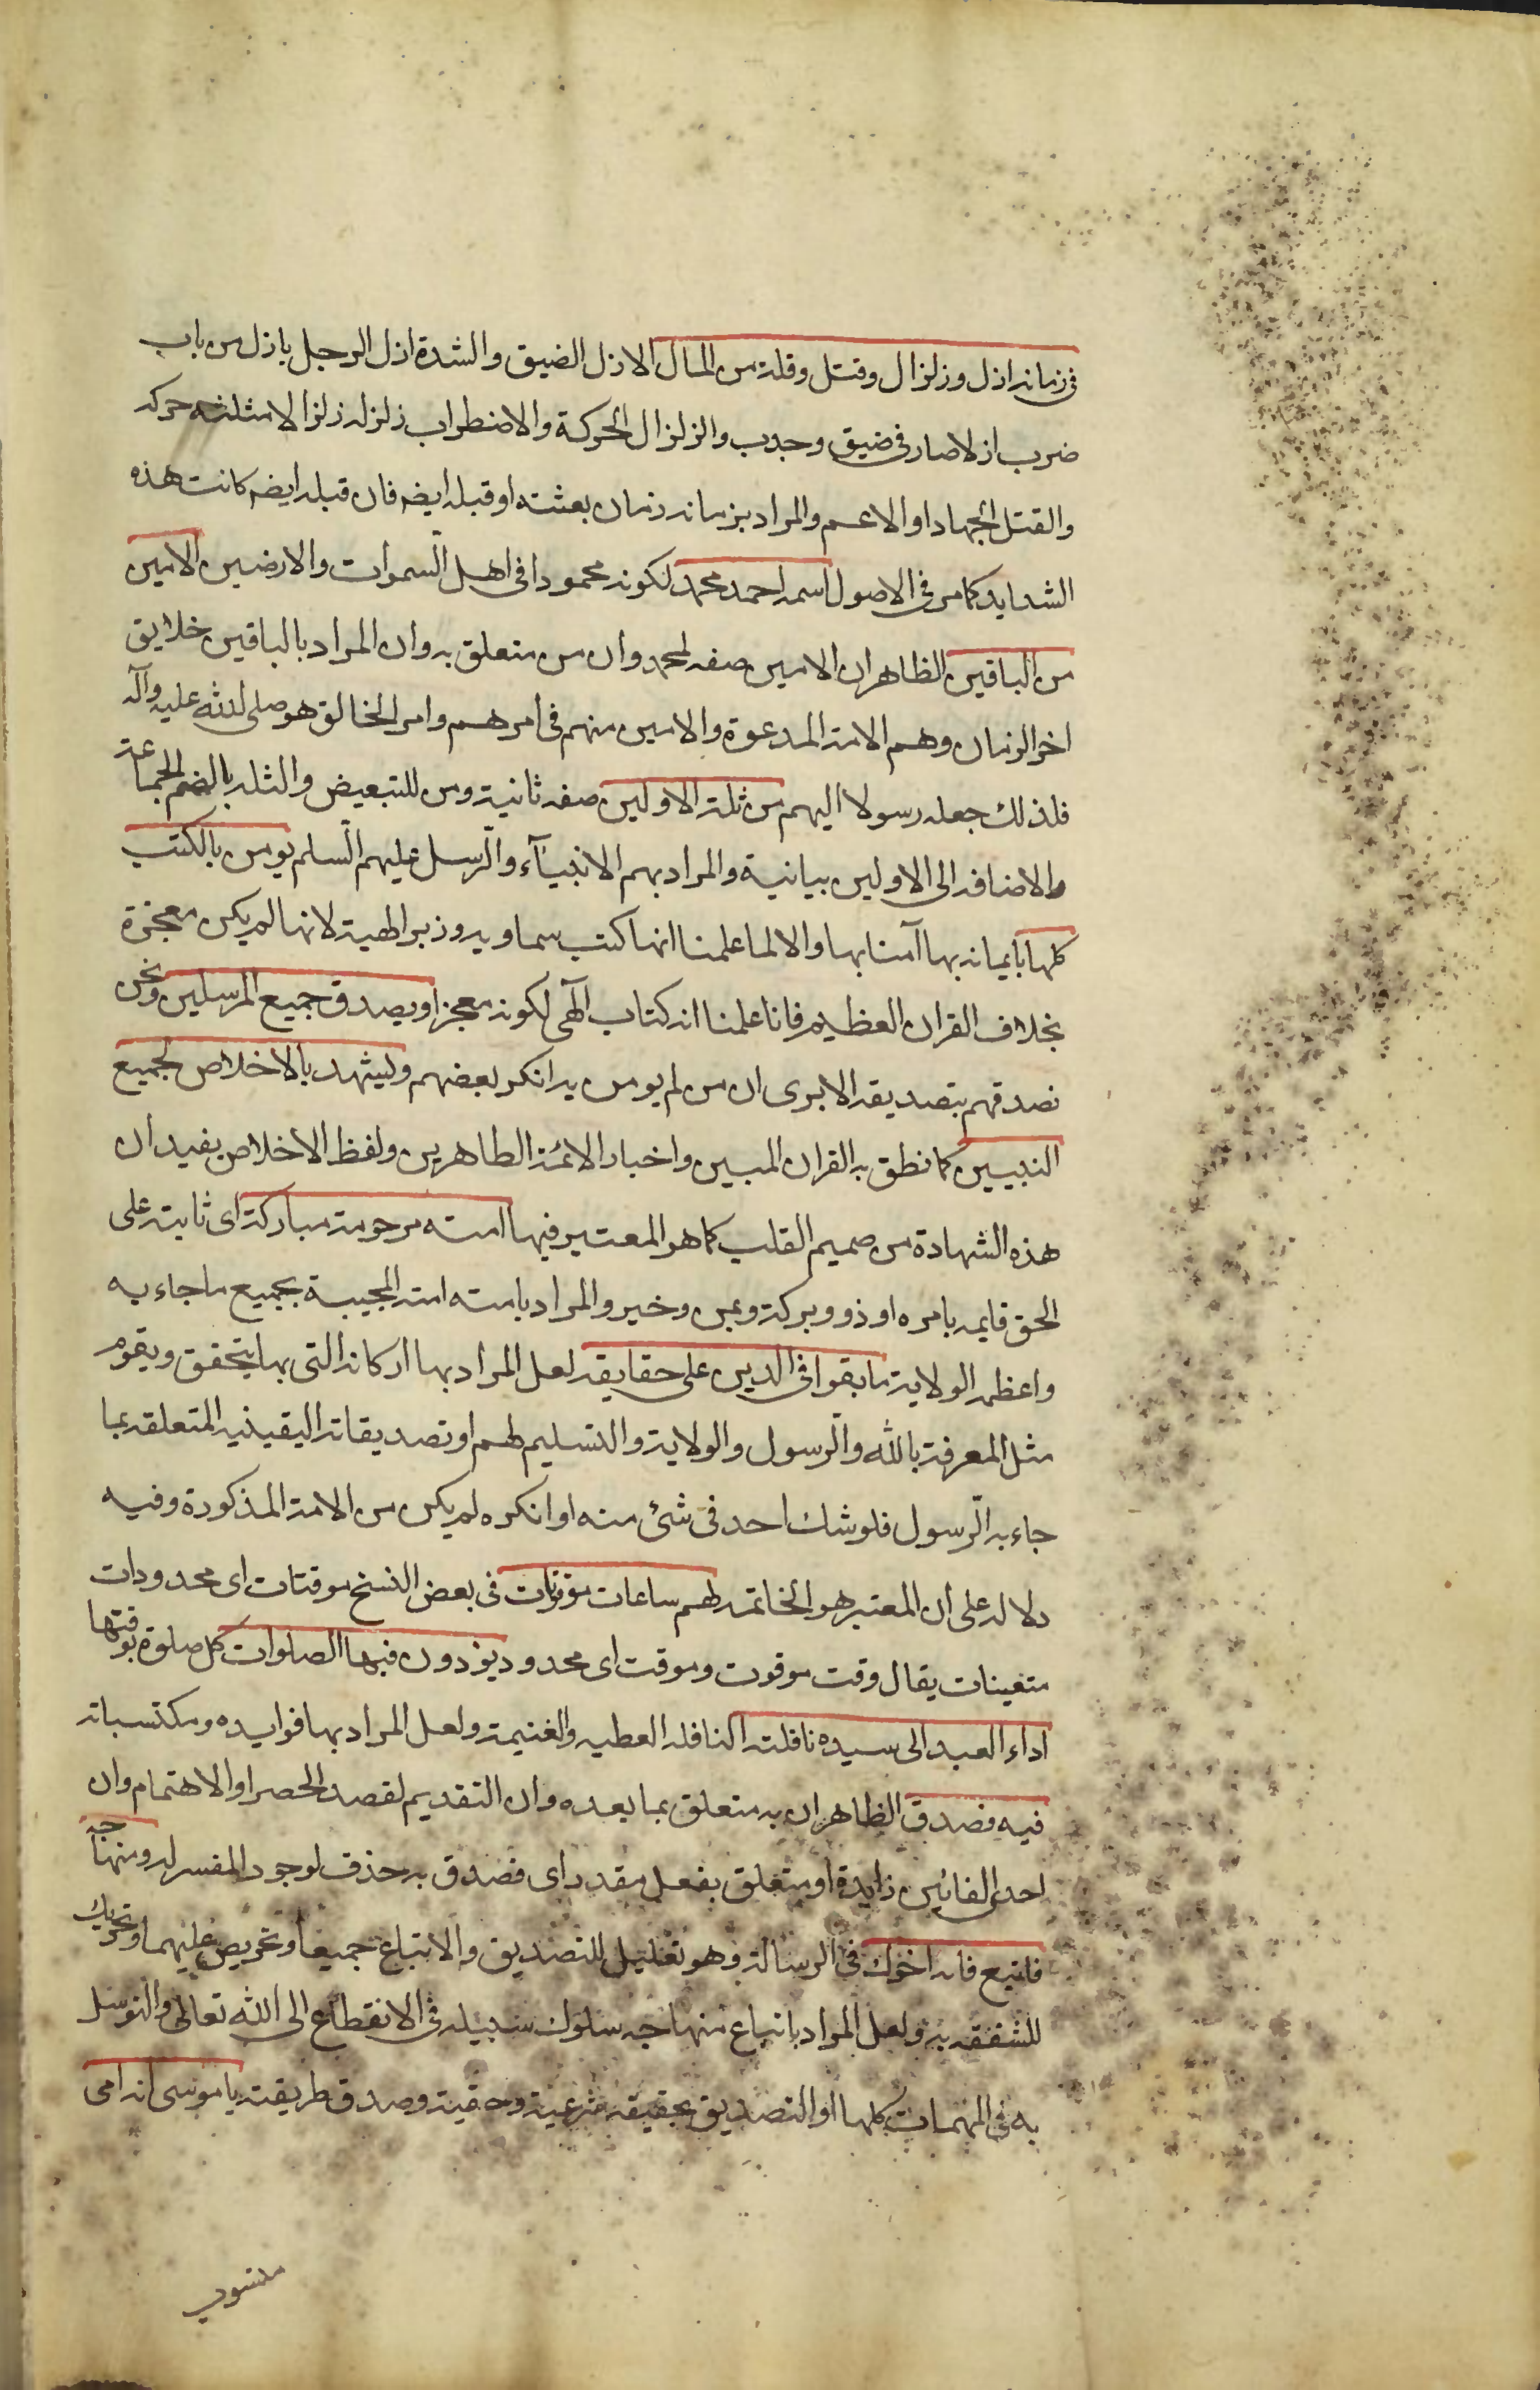 فى زمانه ازل وزلزال وقتل وقلة من المال الازل الضيق والشدة ازل الرجل يازل من باب
ضرب ازلا صار فى ضيق وجدب والزلزال الحركة والاضطراب زلزله زلزالا مثلثه حركه
والقتل الجهاد او الاعم والمراد بزمانه زمان بعثته او قبله ايضه فان قبله ايضه كانت هذه
الشدايد كما مر فى الاصول اسمه احمد محمد لكونه محمودا فى اهل السموات والارضين الامين
من الباقين الظاهر ان الامين صفه لمحمد وان من متعلق به وان المراد بالباقين خلايق
اخر الزمان وهم الامة المدعوة والامين منهم فى امرهم وامر الخالق هو صلى الله عليه وآله
فلذلك جعله رسولا اليهم من ثلة الاولين صفه ثانية ومن للتبعيض والثله بالضم الجماعة
والاضافه الى الاولين بيانية والمراد بهم الانبيآء والرسل عليهم السلم يومن بالكتب
كلها بايمانه بها آمنا بها والا لما علمنا انها كتب سماويه وزبر الهية لانها لم يكن معجزة
بخلاف القران العظيم فانا علمنا انه كتاب آلهى لكونه معجزا ويصدق جميع المرسلين ونحن
نصدقهم بتصديقه الا يرى ان من لم يومن به انكر بعضهم وليشهد بالاخلاص لجميع
النبيين كما نطق به القران المبين واخبار الائمة الطاهرين ولفظ الاخلاص يفيد ان
هذه الشهادة من صميم القلب كما هو المعتبر فيها امته مرحومة مباركة اى ثابته على
الحق قايمه بامره او ذوو بركة ويمن وخير والمراد بامته امته المجيبة بجميع ما جاء به
واعظمه الولاية ما بقوا فى الدين على حقايقه لعل المراد بها اركانه التى بها يتحقق ويقوم
مثل المعرفة بالله والرسول والولاية والتسليم لهم او تصديقاته اليقينيه المتعلقه بما
جاء به الرسول فلو شك احد فى شئ منه او انكره لم يكن من الامة المذكورة وفيه
دلاله على ان المعتبر هو الخاتمه لهم ساعات موقوتات فى بعض النسخ موقتات اى محدودات
متعينات يقال وقت موقوت وموقت اى محدود يؤدون فيها الصلوات كل صلوة بوقتها
اداء العبد الى سيده نافلته النافله العطيه والغنيمة ولعل المراد بها فوايده ومكتسباته
فيه فصدق الظاهر ان به متعلق بما بعده وان التقديم لقصد الحصر او الاهتمام وان
احدى الفائين زايدة او متعلق بفعل مقدر اى فصدق به حذف لوجود المفسر له ومنهاجه
فاتبع فانه اخوك فى الرسالة وهو تعليل للتصديق والاتباع جميعا وتحريص عليهما وتحريك
للشفقه به ولعل المراد باتباع منهاجه سلوك سبيله فى الانقطاع الى الله تعالى والتوسل
به فى المهمات كلها او التصديق بحقيقة شرعية وحقية وصدق طريقته يا موسى انه امى